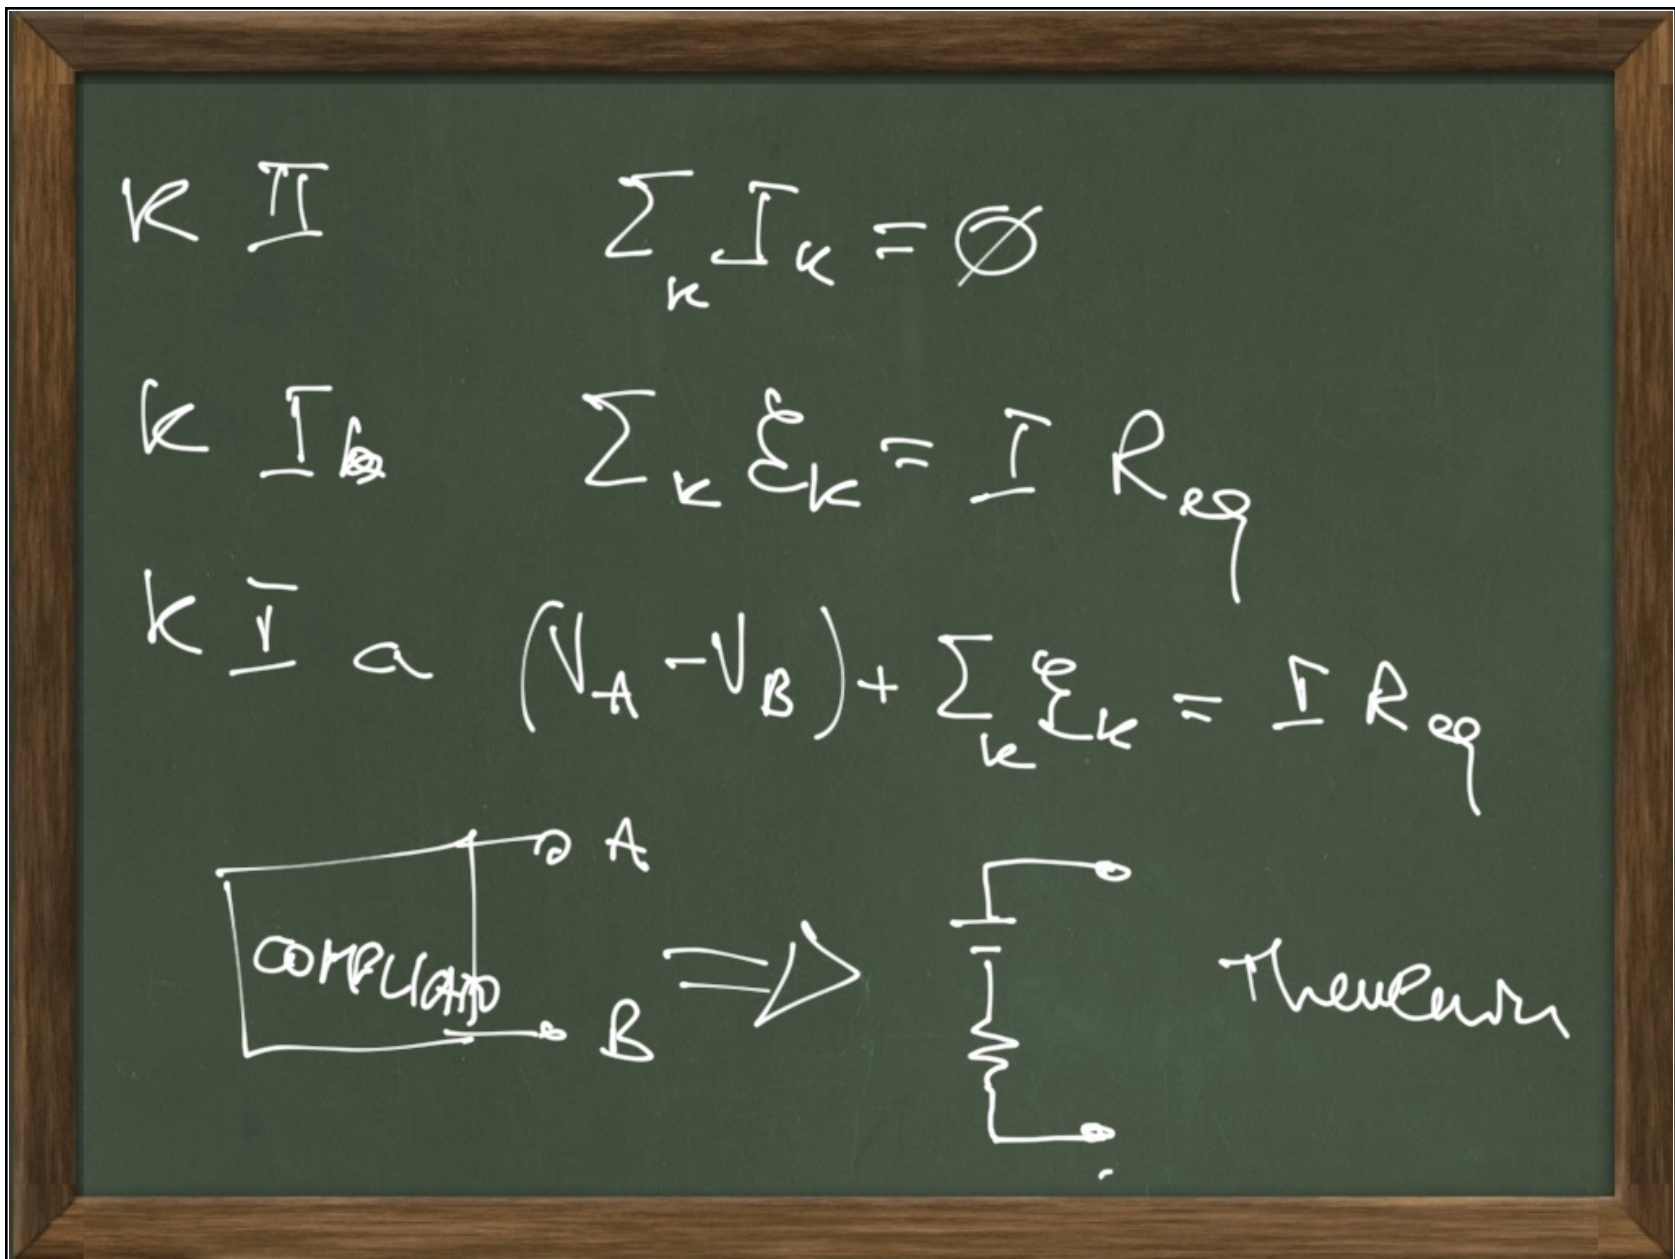 K II Σ_k I_k = ∅
K I b Σ_k ξ_k = I R_eq
K I a (V_A - V_B) + Σ_k ξ_k = I R_eq
A
COMPLICATO
B
Thevenin